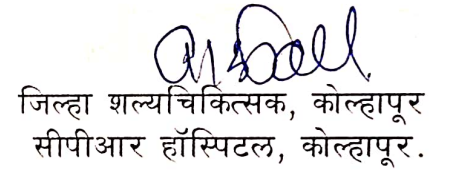 जिल्हा शल्यचिकित्सक, कोल्हापूर
सीपीआर हॉस्पिटल, कोल्हापूर.